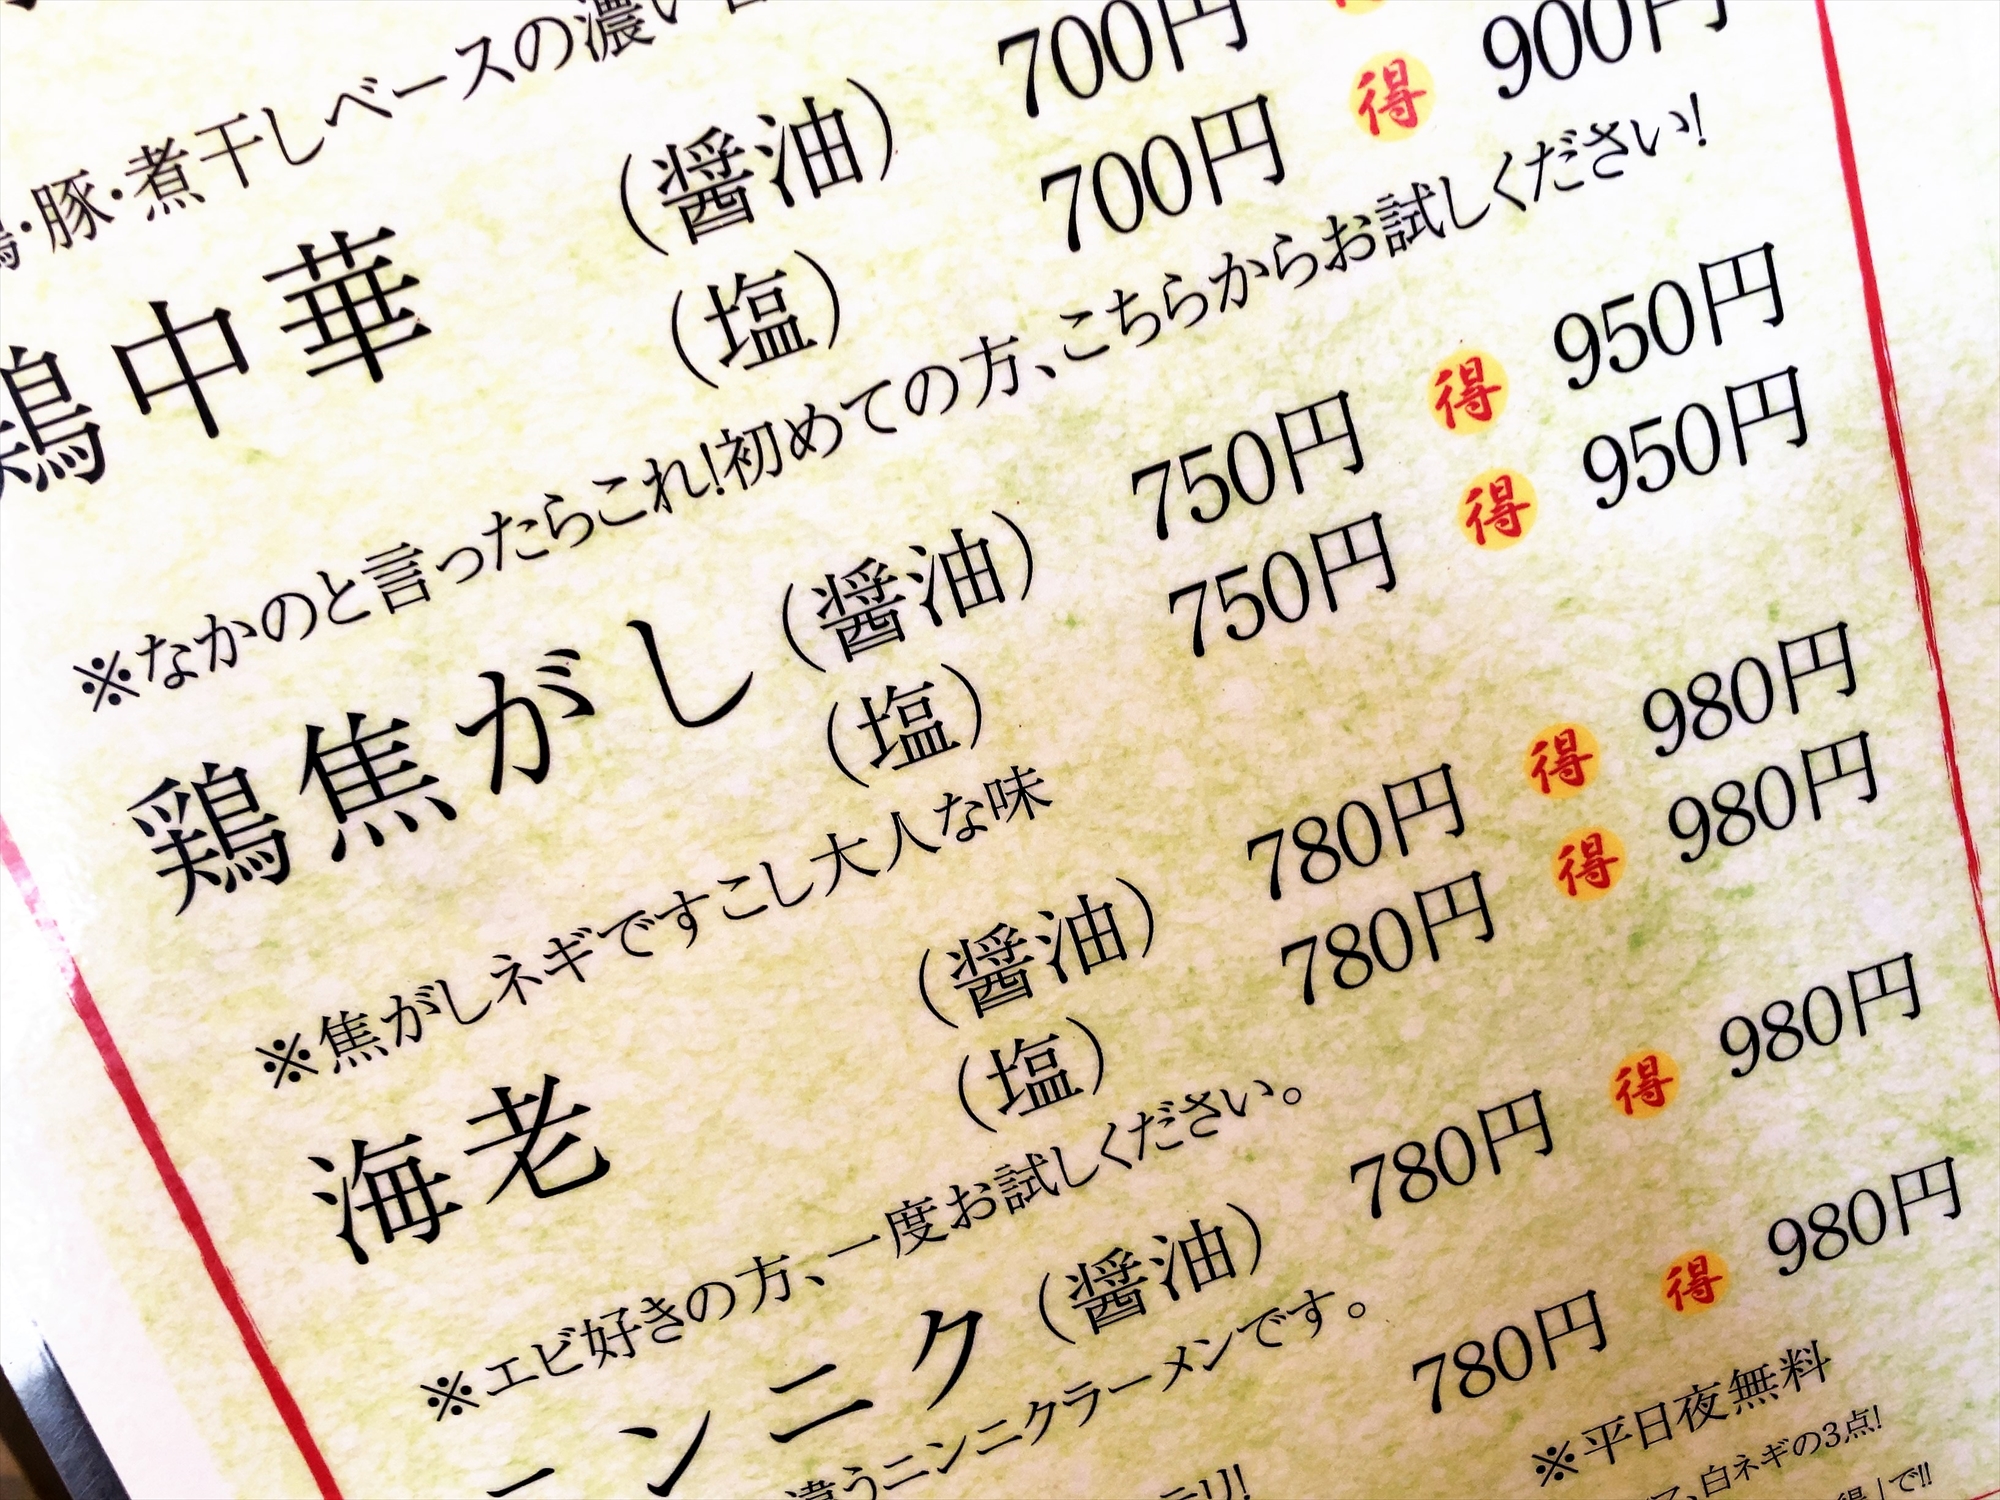 ・豚・煮干しベースの濃い
鶏中華 （醤油） 700円
（塩） 700円 得 900円
※なかのと言ったらこれ!初めての方、こちらからお試しください!
鶏焦がし（醤油） 750円 得 950円
（塩） 750円 得 950円
※焦がしネギですこし大人な味
海老 （醤油） 780円 得 980円
（塩） 780円 得 980円
※エビ好きの方、一度お試しください。
ニンニク（醤油） 780円 得 980円
違うニンニクラーメンです。
780円 得 980円
※平日夜無料
、白ネギの3点!
得」で!!